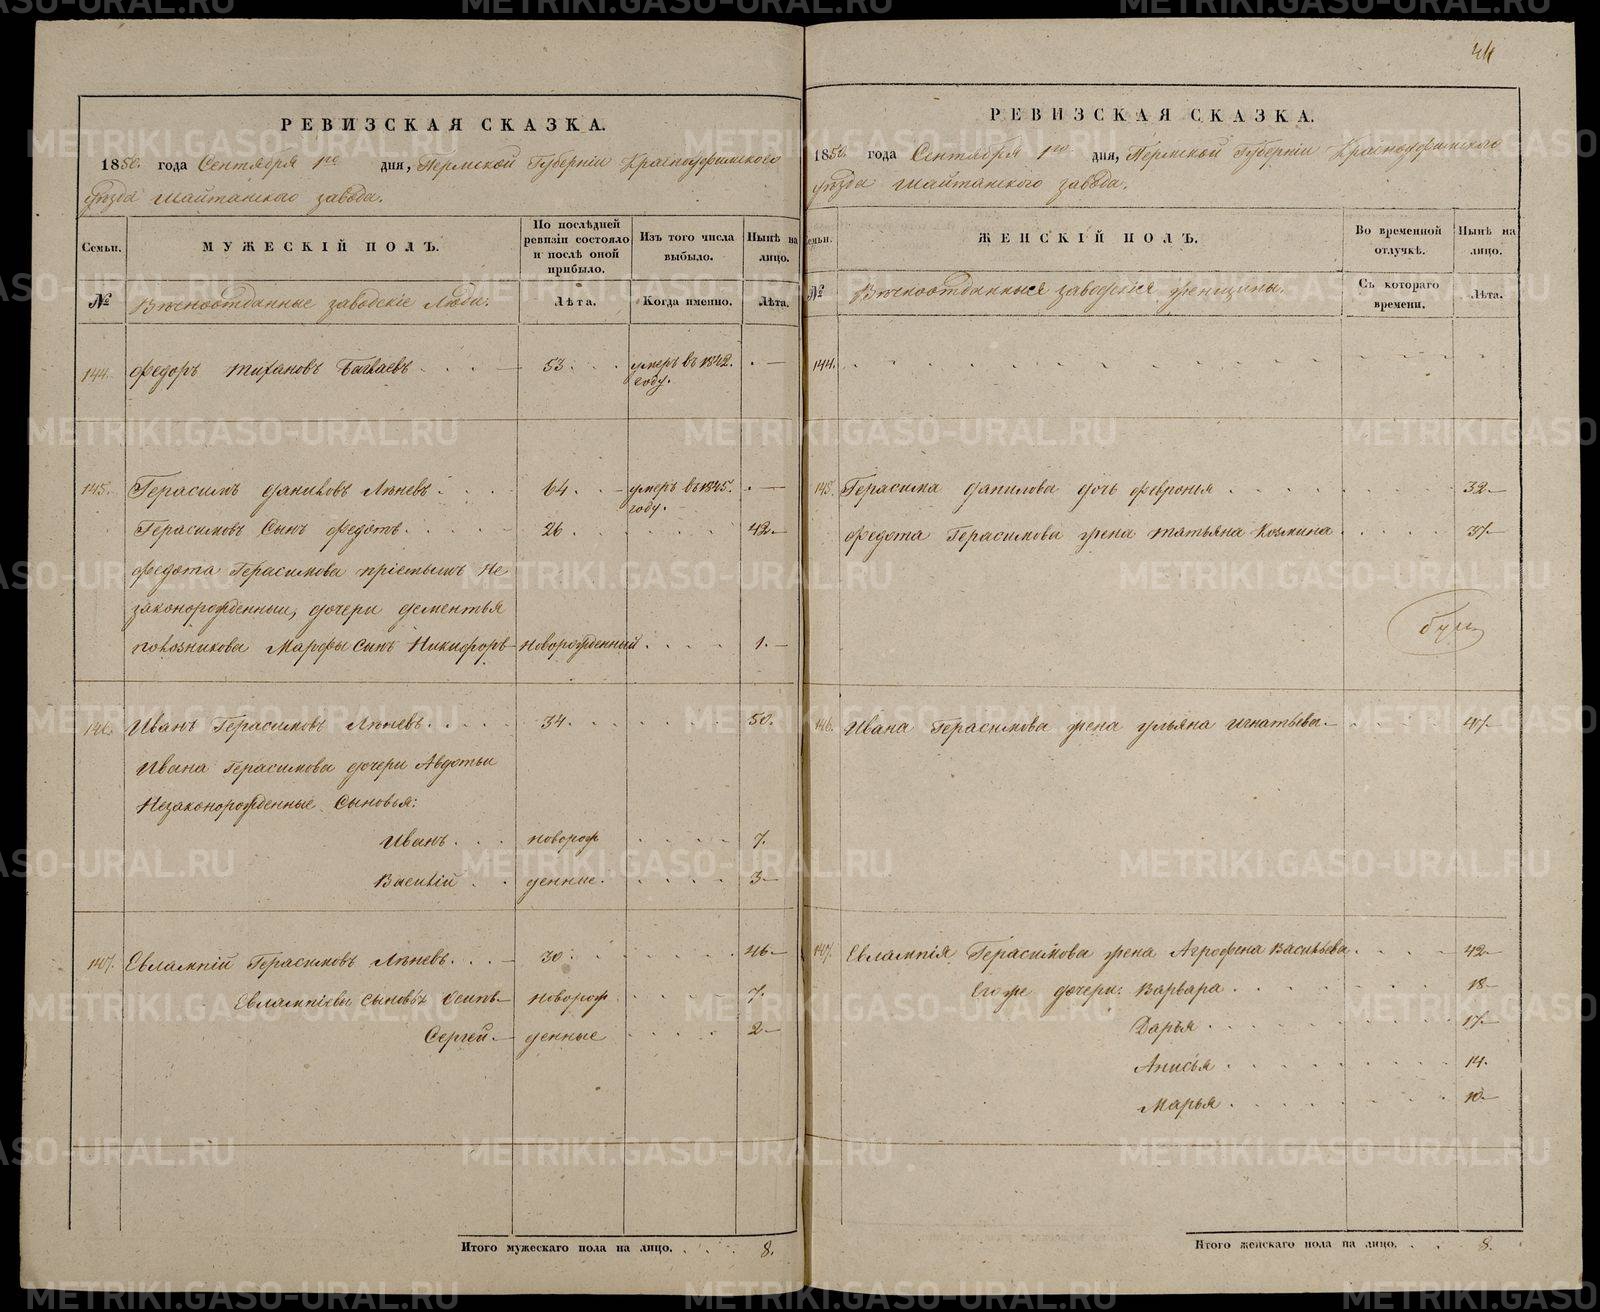 44
РЕВИЗСКАЯ СКАЗКА.
1850. года Сентября 1го дня, Пермской Губерніи Красноуфимскаго
уѣзда Шайтанскаго завода.
Семьи.
МУЖЕСКІЙ ПОЛЪ.
По послѣдней ревизіи состояло и послѣ оной прибыло.
Изъ того числа выбыло.
Нынѣ на лицо.
№
Вѣчноотданные заводскіе Люди.
Лѣта.
Когда именно.
Лѣта.
144. Федоръ Тихановъ 53. умеръ въ 1842. году. —
145. Герасимъ Даниловъ Лѣневъ. 64. умеръ въ 1845. году. —
Герасимовъ Сынъ Федотъ. 26. 42.—
Федота Герасимова пріемышъ Не
законорожденный, дочери Дементья
Марфы Сынъ Никифоръ — новорожденный 1.—
146. Иванъ Герасимовъ Лѣневъ. 34. 50.
Ивана Герасимова дочери Авдотьи
Незаконорожденные Сыновья:
Иванъ. новорож 7.
Василій денные. 3—
147. Евлампій Герасимовъ Лѣневъ. 30. 46.—
Евлампіевы Сыновья Осипъ— новорож 7.—
Сергей.— денные 2—
Итого мужескаго пола на лицо. 8.
РЕВИЗСКАЯ СКАЗКА.
1850. года Сентября 1го дня, Пермской Губерніи Красноуфимскаго
уѣзда Шайтанскаго завода.
Семьи.
ЖЕНСКІЙ ПОЛЪ.
Во временной отлучкѣ.
Нынѣ на лицо.
№
Вѣчноотданныя заводскія женщины.
Съ котораго времени.
Лѣта.
144.
145. Герасима Данилова дочь Февронья 32—
Федота Герасимова жена Татьяна Козмина 37—
146. Ивана Герасимова жена Ульяна Игнатьева.— 47—
147. Евлампія Герасимова жена Агрофена Васильева 42—
Его же дочери: Варвара 18—
Дарья 17—
Анисья 14.
Марья 10.—
Итого женскаго пола на лицо. 8.
METRIKI.GASO-URAL.RU